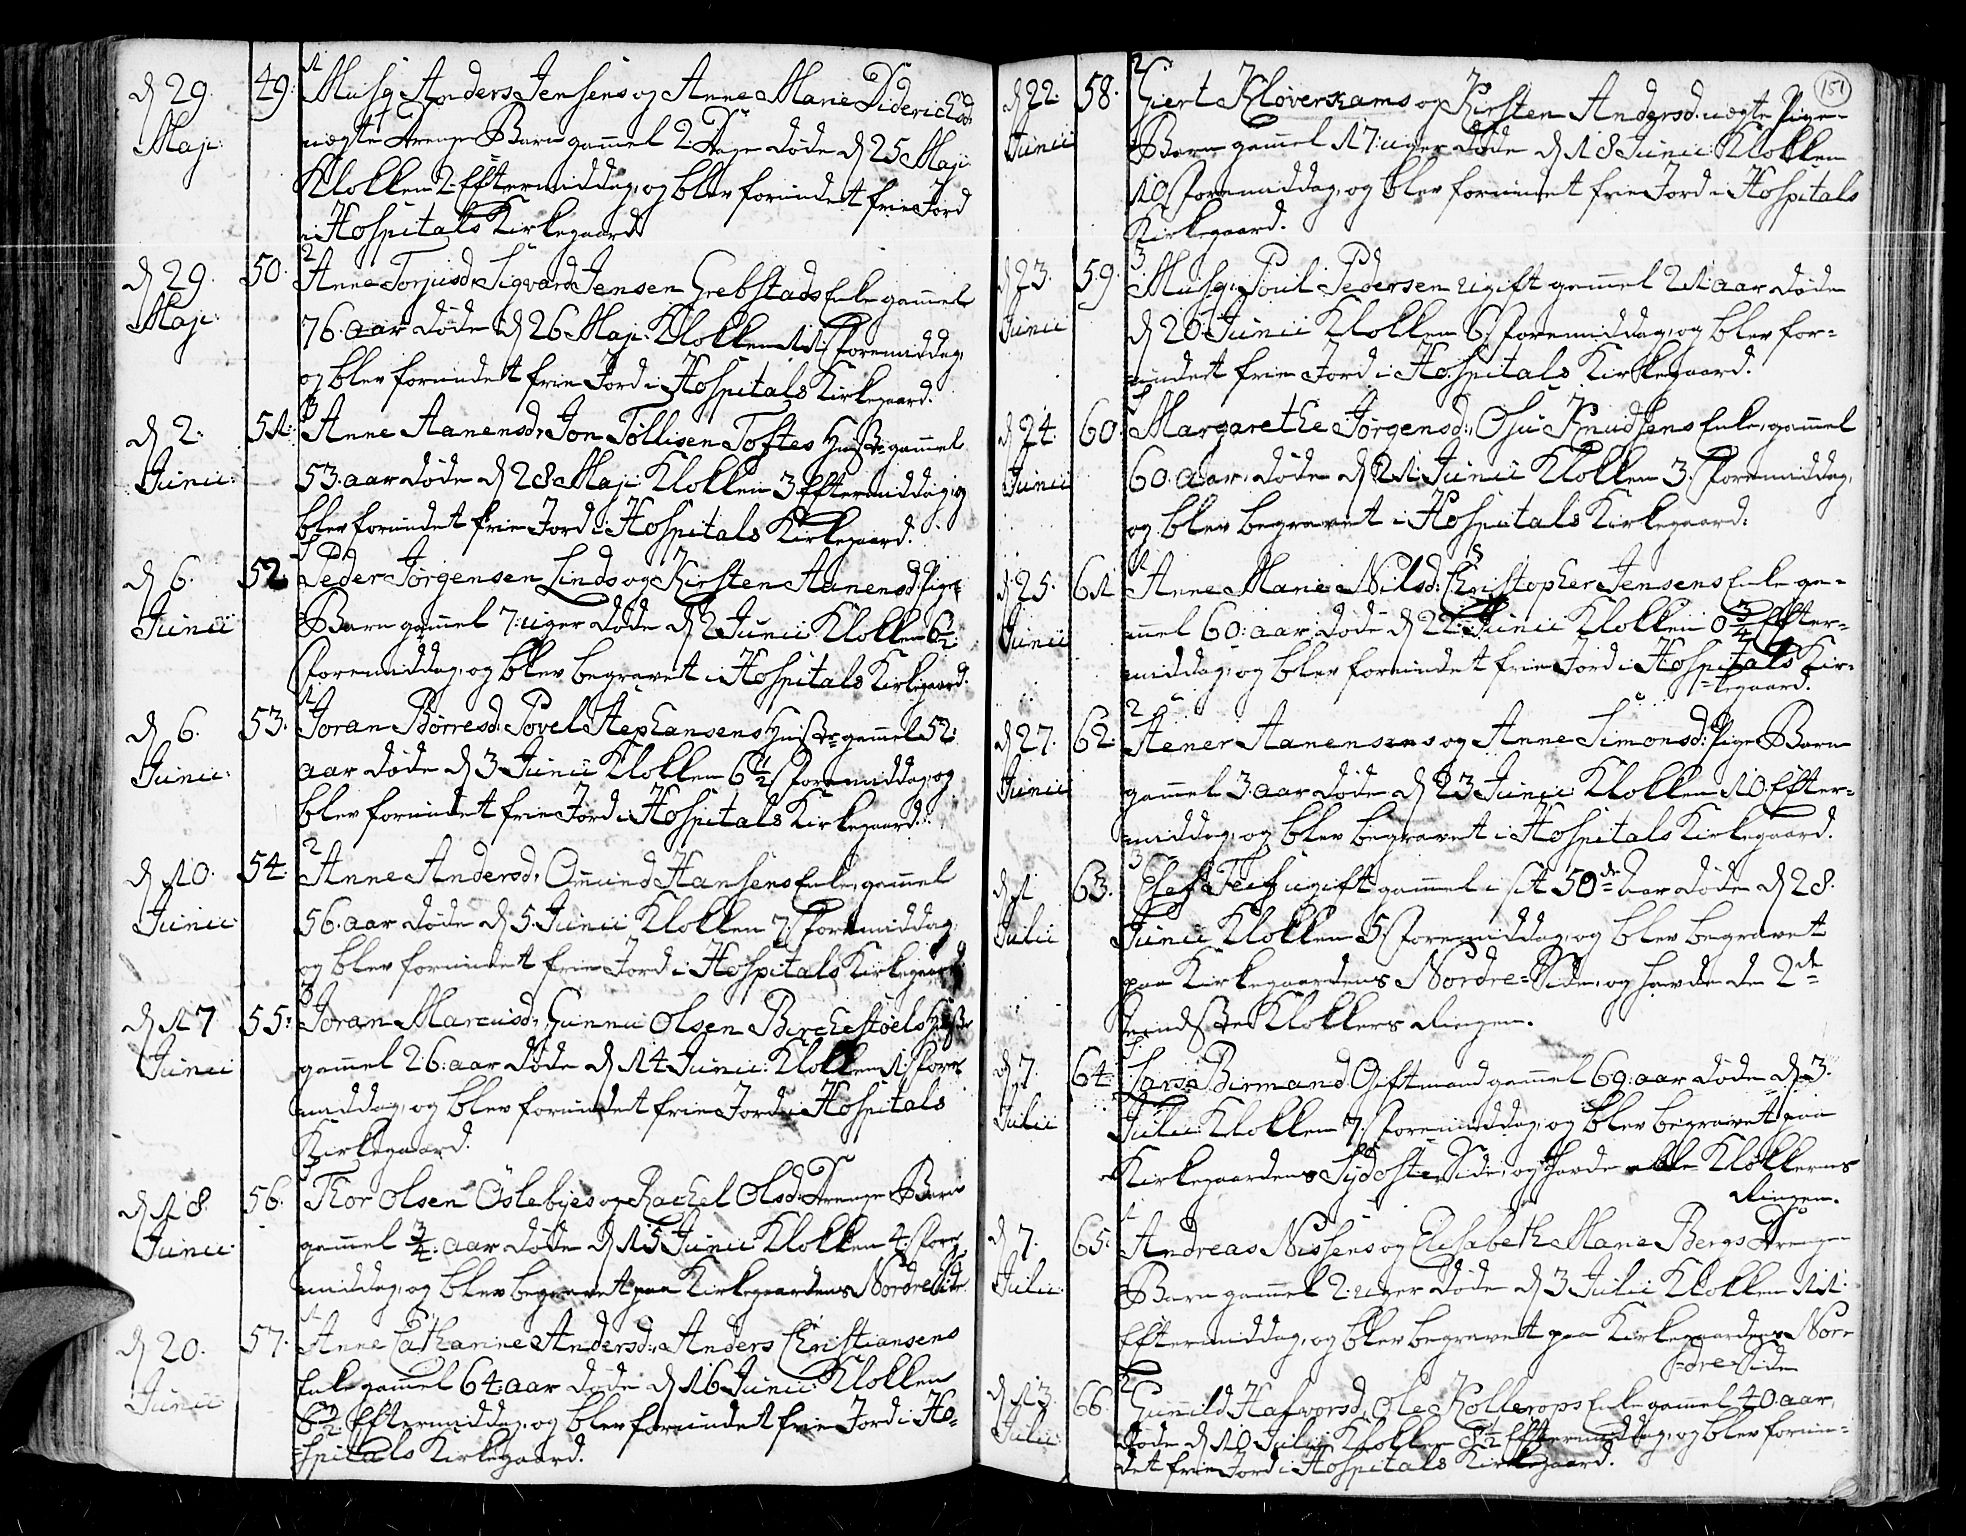 d 29. Maji 49. Musq: Anders Jensens og Anne Marie Diderichsd:
ægte Drenge Barn gammel 2: Dage døde d 25 Maji
Klokken 2 Eftermiddag, og blev forundet frie Jord
i Hospitals Kirkegaard.
d 29. Maji: 50. Anne Torjusd: Sigvard Jensen Grebstads Enke gammel
76 aar døde d 26 Maji: Klokken 11 Formiddag,
og blev forundet frie Jord i Hospitals Kirkegaard.
d 2. Junii: 51. Anne Aanensd: Jon Tollisen Toftes Hustr: gammel
53. aar døde d 28 Maji Klokken 3 Eftermiddag, og
blev forundet frie Jord i Hospitals Kirkegaard.
d 6. Junii 52 Peder Jørgensen Linds og Kirsten Aanensd: Pige
Barn gammel 7: uger døde d 2 Junii Klokken 6½:
Formiddag, og blev begravet i Hospitals Kirkegaard.
d 6. Junii: 53. Joran Børresd: Povel Stephansens Hustr: gammel 52:
aar døde d 3 Junii Klokken 6½ Formiddag, og
blev forundet frie Jord i Hospitals Kirkegaard.
d 10. Junii: 54. Anne Andersd: Omund Hansens Enke, gammel
56. aar døde d 5. Junii Klokken 7 Formiddag,
og blev forundet frie Jord i Hospitals Kirkegaard
d 17 Junii 55: Joran Marcusd: Gunnu Olsen Birchestøels Hustr:
gammel 26: aar døde d 14 Junii: Klokken 1: For-
middag, og blev forundet frie Jord i Hospitals
Kirkegaard.
d 18. Junii: 56. Thor Olsen Oslebyes og Rachel Olsd: Drenge Barn
gammel ¾: aar døde d 15 Junii Klokken 4 For-
middag, og blev begravet paa Kirkegaardens Nordre Side.
d 20. Junii 57. Anne Cathanine Andersd: Anders Christiansens
Enke gammel 64: aar døde d 16 Junii: Klokken
8½ Eftermiddag, og blev forundet frie Jord i Ho-
=spitals Kirkegaard.
151
d 22. Junii 58. Giert Kløverkams og Kirsten Andersd: ægte Pige-
Barn gammel 17: uger døde d 18 Junii: Klokken
10 Formiddag, og blev forundet frie Jord i Hospitals
Kirkegaard.
d 23. Junii 59. Musq: Poul Pedersen ugift gammel 21: aar døde
d 20: Junii Klokken 6 Formiddag, og blev for-
=undet frie Jord i Hospitals Kirkegaard.
d 24. Junii 60. Margarethe Jørgensd: Osu Knudsens Enke, gammel
60. aar, døde d 21: Junii Klokken 3. Formiddag,
og blev begravet i Hospitals Kirkegaard:
d 25. Junii 61 Anne Marie Nilsd: Christopher Jensens Enke ga-
mmel 60: aar døde d 22: Junii Klokken 0¾ Efter-
middag, og blev forundet frie Jord i Hospitals Kir-
=kegaard.
d 27. Junii 62. Stener Aanensens og Anne Simonsd: Pige Barn
gammel 3. aar døde d 23 Junii: Klokken 10. Efter-
middag, og blev begravet i Hospitals Kirkegaard.
d 1 Julii 63. ugift gammel i sit 50de Aar døde d 28.
Junii Klokken 5 Formiddag, og blev begravet
paa Kirkegaardens Nordre=Side, og havde de 2de
mindste Klokkers Ringen.
d 7. Julii 64. Lars Birmand Giftmand gammel 69: aar døde d 3.
Julii: Klokken 7. Formiddag, og blev begravet paa
Kirkegaardens Sydoste Side, og havde alle Klokkernes
Ringen.
d 7. Julii: 65. Andreas Nissens og Elisabeth Marie Bergs Drenge
Barn gammel 2: uger døde d 3 Julii Klokken 11:
Eftermiddag, og blev begravet paa Kirkegaardens Nor-
=dre Side
d 13. Julii: 66. Gunnild Halvorsd: Ole Kollerops Enke gammel 40. aar,
døde d 10 Julii Klokken 8½ Eftermiddag, og blev forun-
det frie Jord i Hospitals Kirkegaard.